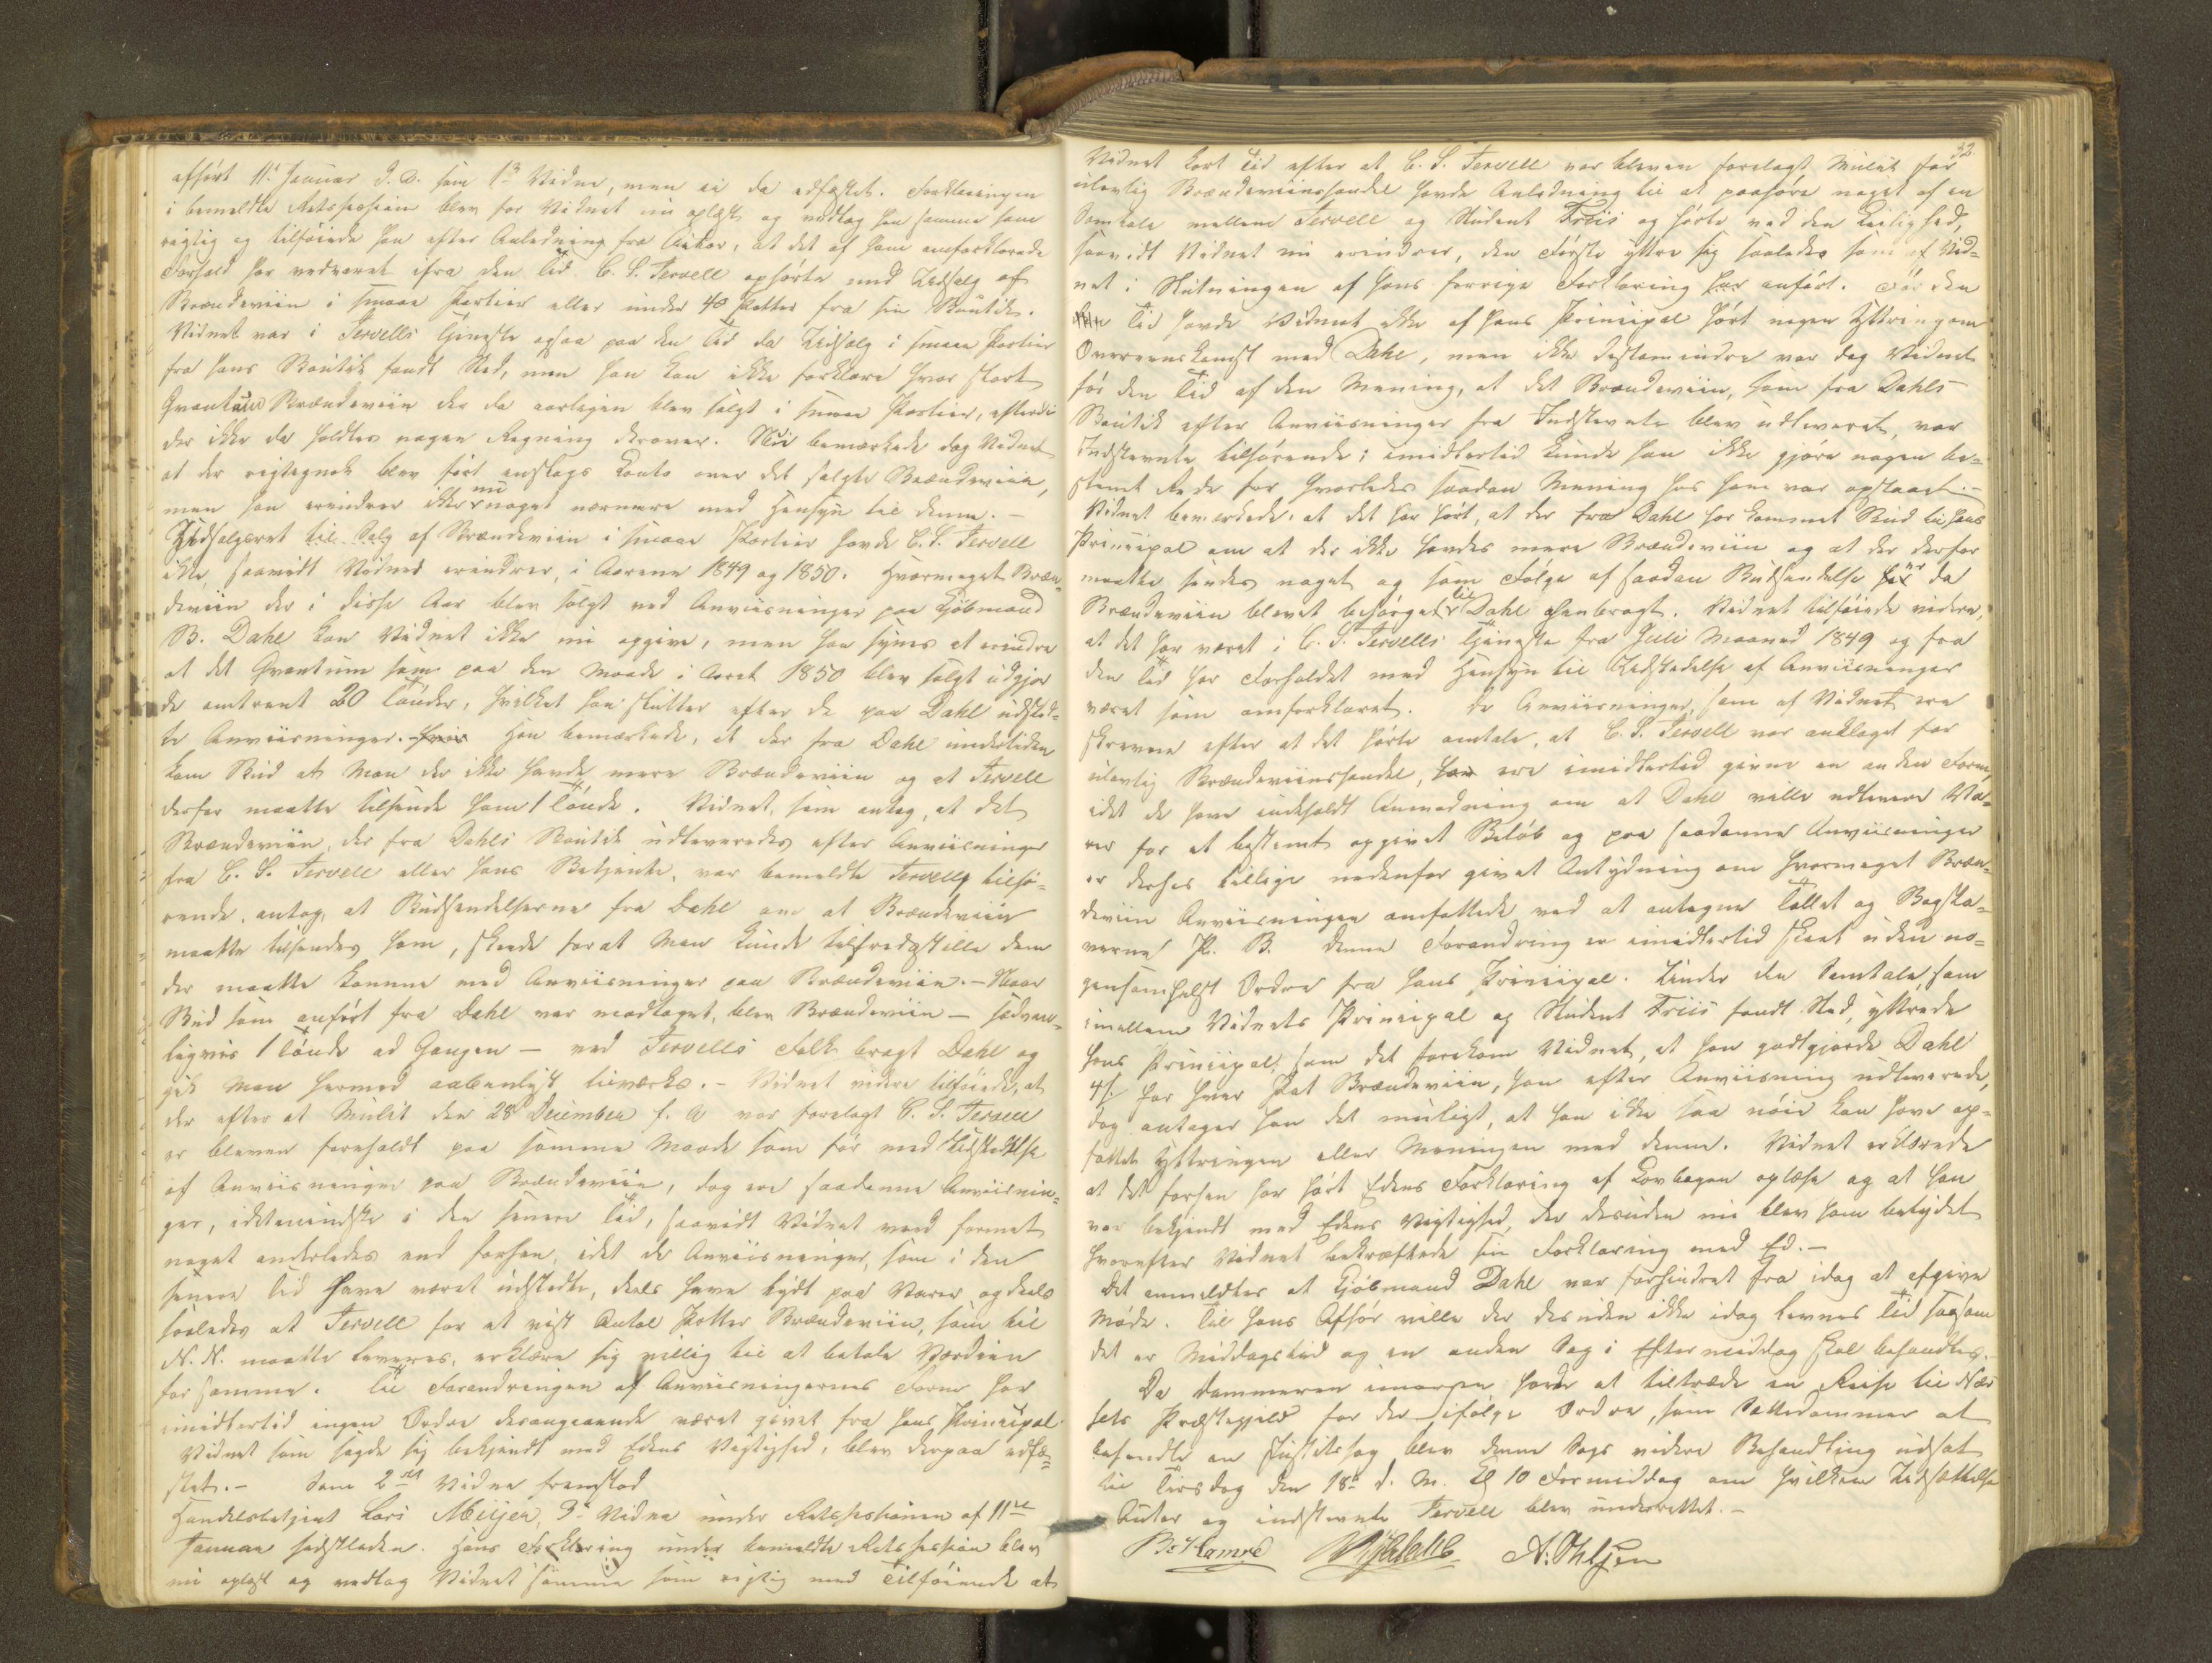 afhört 11te Januar d. A. som 1ste Vidne, men ei da edfæstet. Forklaringen
i bemeldte Retssession blev for Vidnet nu oplæst og vedtog han samme som
rigtig og tilføiede han efter Anledning fra Actor, at det af ham omforklarede
Forhold har vedvaret ifra den Tid C. S. Tervell ophørte med Udsalg af
Brændeviin i smaae Partier eller under 40 Potter fra sin Boutik.
Vidnet var i Tervells Tjeneste ogsaa paa den Tid da Udsalg i smaae Partier
fra hans Boutik fandt Sted, men han kan ikke forklare hvor stort
Qvantum Brændeviin der da aarligen blev solgt i smaae Partier, efterdi
der ikke da holdtes nogen Regning derover. Nu bemærkede dog Vidnet
at der rigtignok blev ført enslags Conto over det solgte Brændeviin,
men han erindrer ikke nu noget nærmere med Hensyn til denne. –
Udsalgsret til Salg af Brændeviin i smaae Partier havde C. S. Tervell
ikke, saavidt Vidnet erindrer, i Aarene 1849 og 1850. Hvormeget Bræn-
deviin der i disse Aar blev solgt ved Anviisninger paa Kjøbmand
B. Dahl kan Vidnet ikke nu opgive, men han synes at erindre
at det Qvantum som paa den Maade i Aaret 1850 blev solgt udgjor
de omtrent 20 Tønder, hvilket han slutter efter de paa Dahl udsted-
te Anviisninger. Han bemærkede, at der fra Dahl undertiden
kom Bud at Man der ikke havde mere Brændeviin og at Tervell
derfor maatte tilsende ham 1 Tønde. Vidnet, som antog, at det
Brændeviin, der fra Dahls Boutik udleveredes efter Anviisninger
fra C. S. Tervell eller hans Betjente, var bemeldte Tervell tilhø-
rende, antog, at Budsendelserne fra Dahl om at Brændeviin
maatte tilsendes ham, skeede forat Man kunde tilfredsstille dem
der maatte komme med Anviisninger paa Brændeviin. – Naar
Bud som anført fra Dahl var modtaget, blev Brændeviin – sædvan-
ligviis 1 Tønde ad Gangen – ved Tervells Folk bragt Dahl og
gik Man hermed aabenlyst tilværks. – Vidnet videre tilføiede, at
der efter at Mulct den 28de December f. A. var forelagt C. S. Tervell
er bleven forholdt paa samme Maade som før med Udstedelse
af Anviisninger paa Brændeviin, dog ere saadanne Anviisnin-
ger, idetmindste i den senere Tid, saavidt Vidnet veed formet
noget anderledes end forhen, idet de Anviisninger, som i den
senere Tid have været udstedte, deels have lydt paa Varer og deels
saaledes at Tervell for et vist Antal Potter Brændeviin, som til
N. N. maatte leveres, erklære sig villig til at betale Værdien
for samme. Til Forandringen af Anviisningernes Form har
imidlertid ingen Ordre desangaaende været givet fra hans Principal.
Vidnet som sagde sig bekjendt med Edens Vigtighed, blev derpaa edfæ-
stet. – Som 2det Vidne fremstod
Handelsbetjent Lars Meijer, 3die Vidne under Retssessionen af 11te
Januar sidstleden. Hans Forklaring under bemeldte Retssession blev
nu oplæst og vedtog Vidnet samme som rigtig med Tilføiende at
32.
Vidnet kort Tid efter at C. S. Tervell var bleven forelagt Mulct for
ulovlig Brændeviinshandel havde Anledning til at paahøre noget af en
Samtale mellem Tervell og Student Friis og hørte ved den Leilighed,
saavidt Vidnet nu erindrer, den Første yttre sig saaledes som af Vid-
net i Slutningen af hans forrige Forklaring har anført. Før den
Tid havde Vidnet ikke af hans Principal hørt nogen Yttring om
Overeenskomst med Dahl, men ikke destomindre var dog Vidnet
før den Tid af den Mening, at det Brændeviin, som fra Dahls
Boutik efter Anviisninger fra Indstevnte blev udleveret, var
Indstevnte tilhørende; imidlertid kunde han ikke gjøre nogen be-
stemt Rede for hvorledes saadan Mening hos ham var opstaaet. –
Vidnet bemærkede, at det har hørt, at der fra Dahl har kommet Bud til hans
Principal om at der ikke havdes mere Brændeviin og at der derfor
maatte sendes noget og som Følge af saadan Budsendelse er da
Brændeviin blevet besørget til Dahl henbragt. Vidnet tilføiede videre,
at det har været i C. S. Tervells Tjeneste fra Juli Maaned 1849 og fra
den Tid har Forholdet med Hensyn til Udstedelse af Anviisninger
været som omforklaret. De Anviisninger, som af Vidnet ere
skrevne efter at det hørte omtale, at C. S. Tervell var anklaget for
ulovlig Brændeviinshandel, ere imidlertid givne en anden Form,
idet de have indeholdt Anmodning om at Dahl ville udlevere Va-
rer for et bestemt opgivet Beløb og paa saadanne Anviisninger
er derhos tillige nedenfor givet Antydning om hvormeget Bræn-
deviin Anviisningen omfattede ved at antegne Tallet og Bogsta-
verne P. B. Denne Forandring er imidlertid skeet uden no-
gensomhelst Ordre fra hans Principal. Under den Samtale, som
imellem Vidnets Principal og Student Friis fandt Sted, yttrede
hans Principal, som det forekom Vidnet, at han godtgjorde Dahl
4 s. for hver Pot Brændeviin, han efter Anviisning udleverede,
dog antager han det muligt, at han ikke saa nøie kan have op-
fattet Yttringen eller Meningen med denne. Vidnet erklærede
at det forhen har hørt Edens Forklaring af Lovbogen oplæse og at han
var bekjendt med Edens Vigtighed, der desuden nu blev ham betydet
hvorefter Vidnet bekræftede sin Forklaring med Ed. –
Det anmeldtes at Kjøbmand Dahl var forhindret fra idag at afgive
Møde. Til hans Afhør ville der desuden ikke idag levnes Tid saasom
det er Middagstid og en anden Sag i Eftermiddag skal behandles.
Da Dommeren imorgen havde at tiltræde en Reise til Næs
sets Præstegjeld for der ifølge Ordre, som Sættedommer at
behandle en Justitssag blev denne Sags videre Behandling udsat
til Tirsdag den 18de d. M. Kl 10 Formiddag om hvilken Udsættelse
Actor og indstevnte Tervell blev underrettet. –
B. Hamre A. Ohlsen